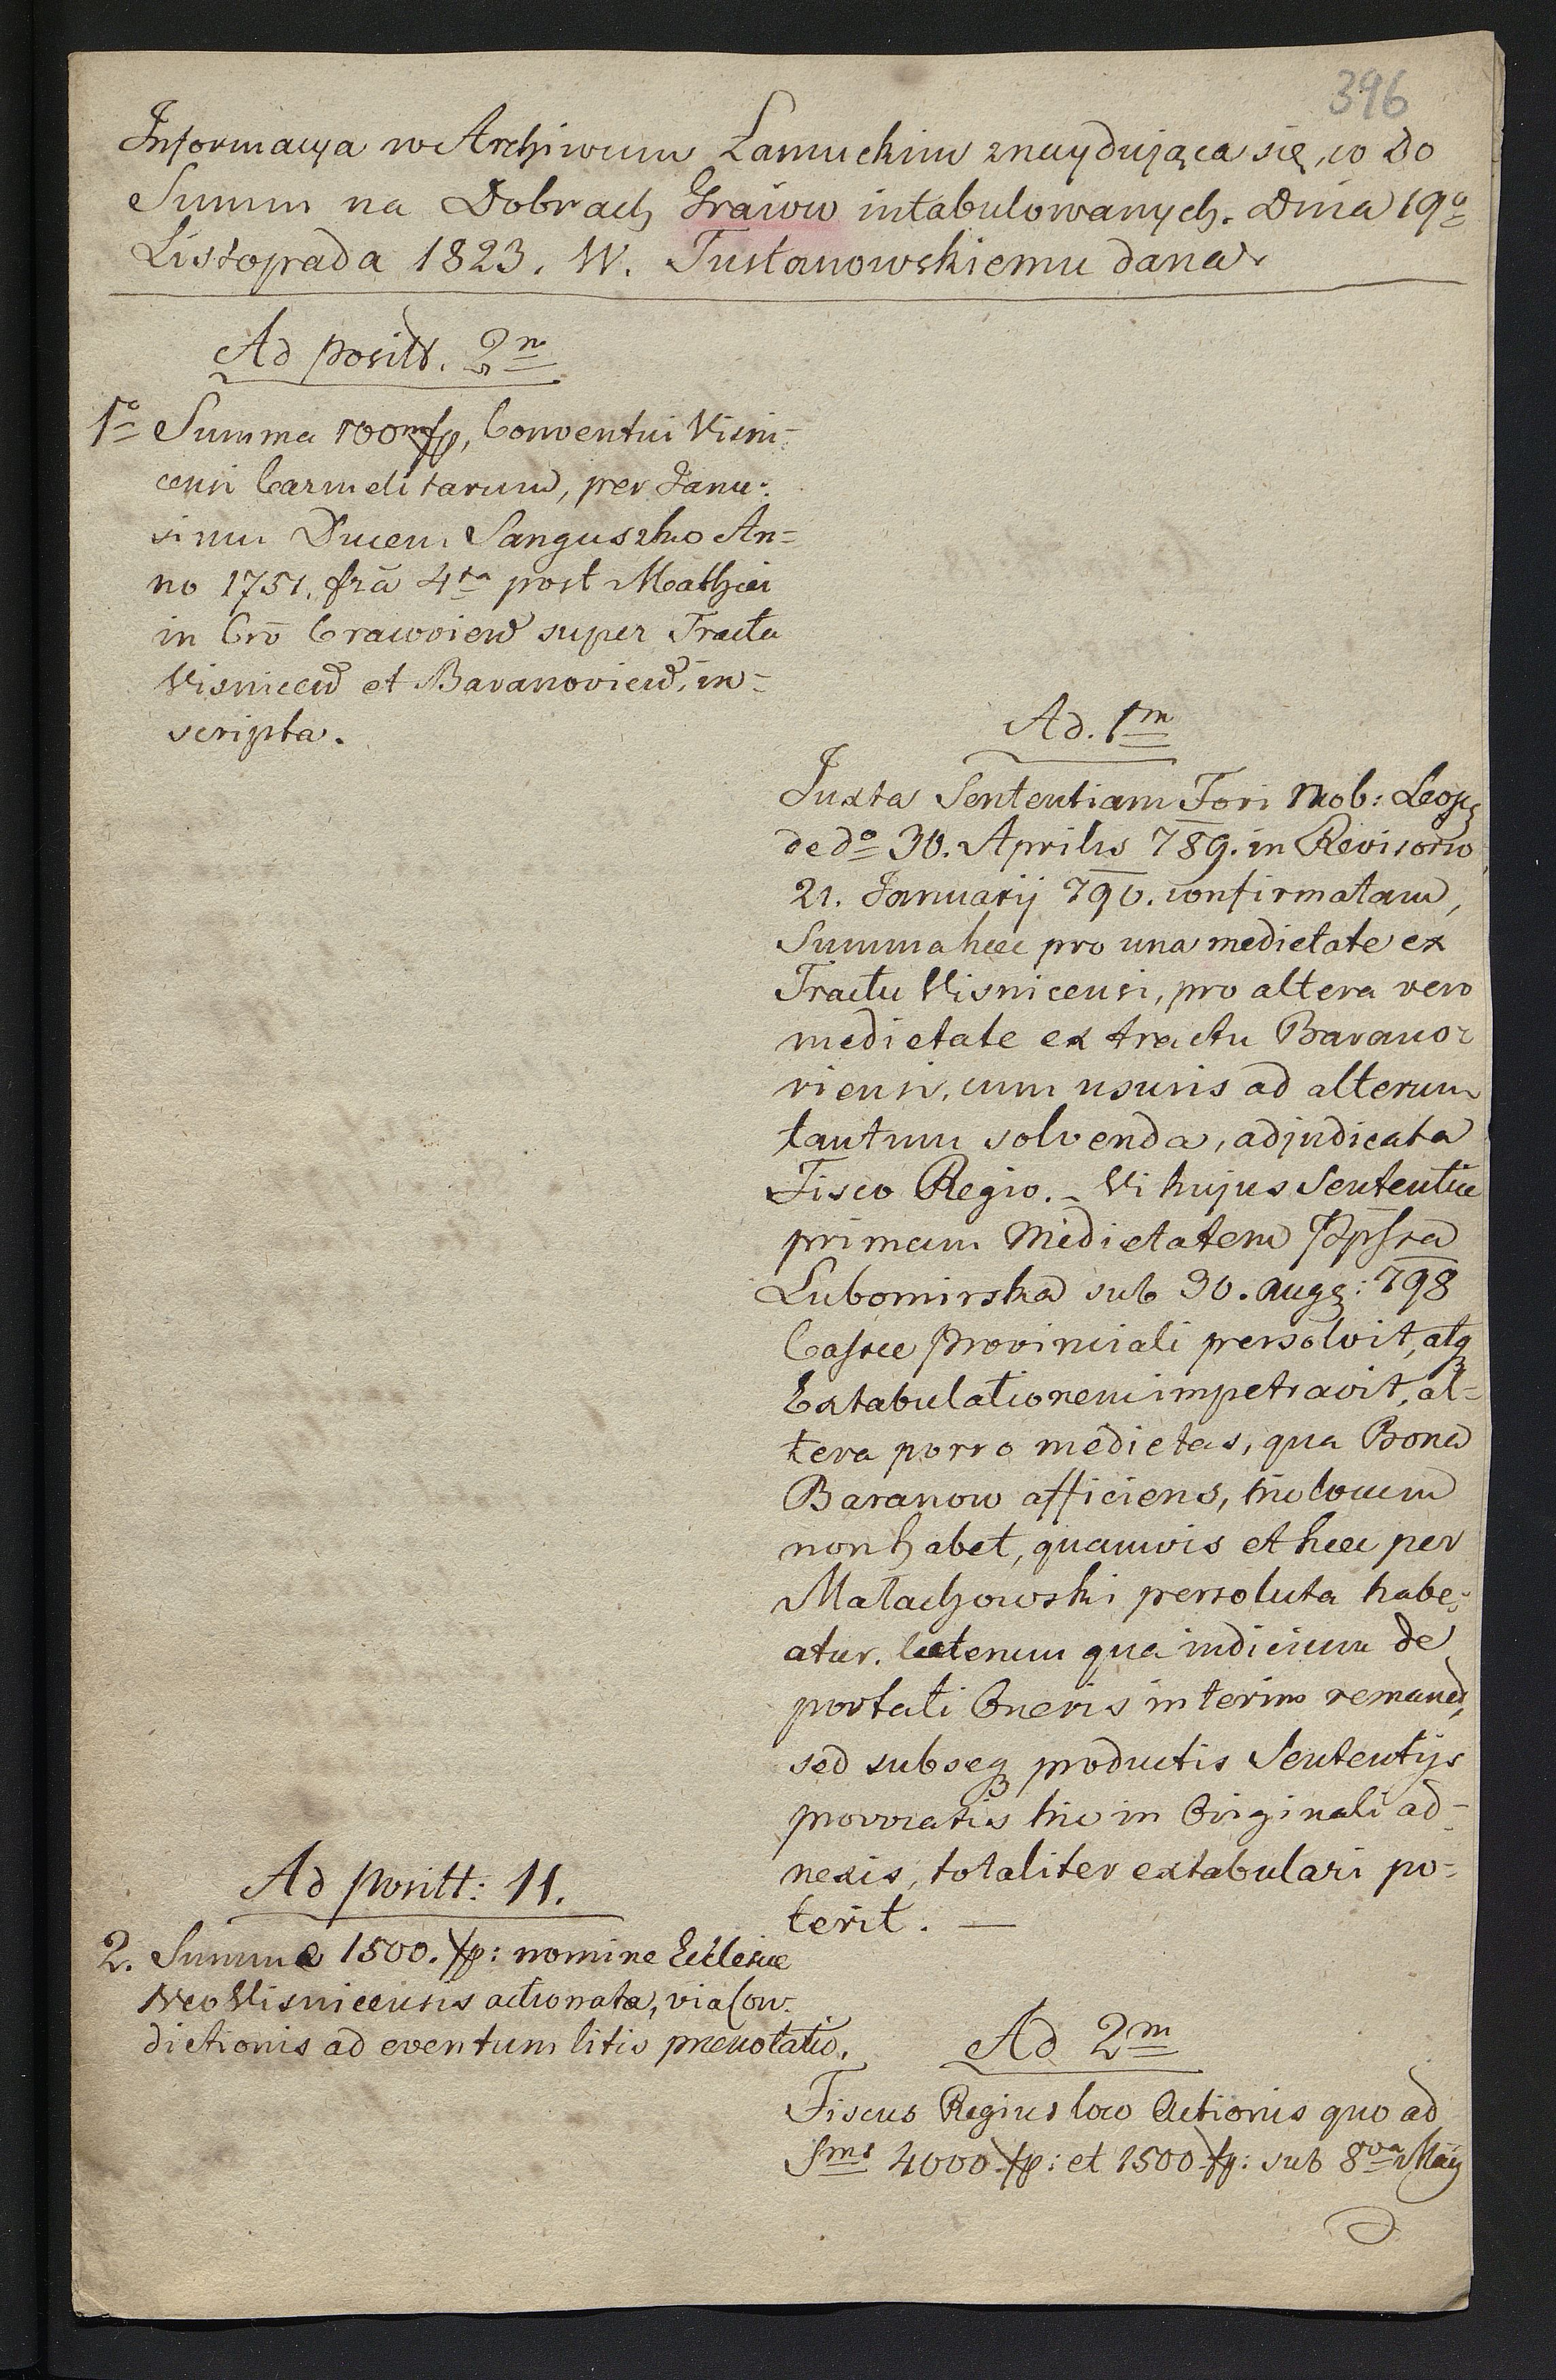 396
Informacya w Archiwum Łanuckim znaydująca się, co do
Summ na Dobrach Graiow intabulowanych. Dnia 19º
Listopada 1823. W. Tustanowskiemu dana
Ad positt. 2m
1º Summa 100m fp, Conventui Visni-
censi Carmelitarum, per Janu-
sium Ducem Sanguszko An-
no 1751. fra 4ta post Mathiæ
in Cro Cracovien super Tractu
Visnicen et Baranovien, in-
scripta.
Ad. 1m
Juxta Sententiam Fori Nob: Leop
de dº 30. Aprilis 789. in Revisorio
21. Januarij 790. confirmatam,
Summa hæc pro una medietate ex
Tractu Visnicensi, pro altera vero
medietate ex tractu Barano-
viensi, cum usuris ad alterum
tantum solvenda, adjudicata
Fisco Regio. - Vi hujus Sententiæ
primam Medietatem
Lubomirska sub 30. Aug: 798
Cassæ Provinciali persolvit, atq
Extabulationem impetravit, al-
tera porro medietas, qua Bona
Baranow afficiens, hic locum
non habet, quamvis et hæc per
Małachowski persoluta habe-
atur. Cæterum qua indicium de
portati Oneris interim remanet,
sed subseq productis Sententijs
provocatis hic in Originali ad-
nexis, totaliter extabulari po-
terit. —
Ad positt: 11.
2. Summa 1500. fp: nomine Ecclesiæ
Neo Visnicensis actionata, via Con-
dictionis ad eventum litis prænotatio.
Ad 2m
Fiscus Regius loco Actionis quo ad
Sms 4000 fp: et 1500 fp: sub 8va Maij